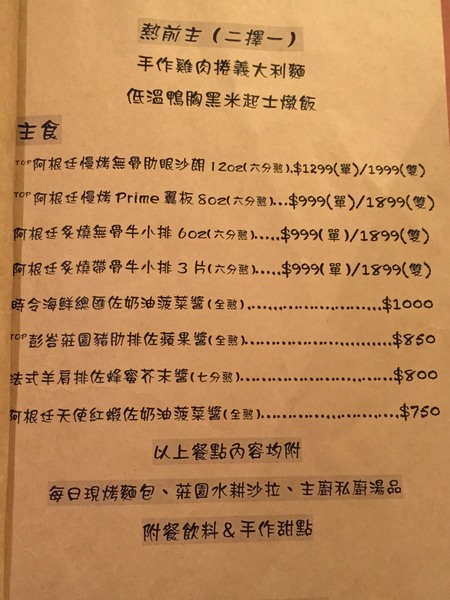 熱前主(二擇一)
手作雞肉捲義大利麵
低溫鴨胸黑米起士燉飯
主食
TOP阿根廷慢烤無骨肋眼沙朗12oz(六分熟).$1299(單)/1999(雙)
TOP阿根廷慢烤Prime翼板8oz(六分熟)...$999(單)/1899(雙)
阿根廷炙燒無骨牛小排6oz(六分熟).....$999(單)/1899(雙)
阿根廷炙燒帶骨牛小排3片(六分熟).....$999(單)/1899(雙)
時令海鮮總匯佐奶油菠菜醬(全熟).......................$1000
TOP彭岩莊園豬肋排佐蘋果醬(全熟).........................$850
法式羊肩排佐蜂蜜芥末醬(七分熟).........................$800
阿根廷天使紅蝦佐奶油菠菜醬(全熟).......................$750
以上餐點內容均附
每日現烤麵包、莊園水耕沙拉、主廚私廚湯品
附餐飲料&手作甜點